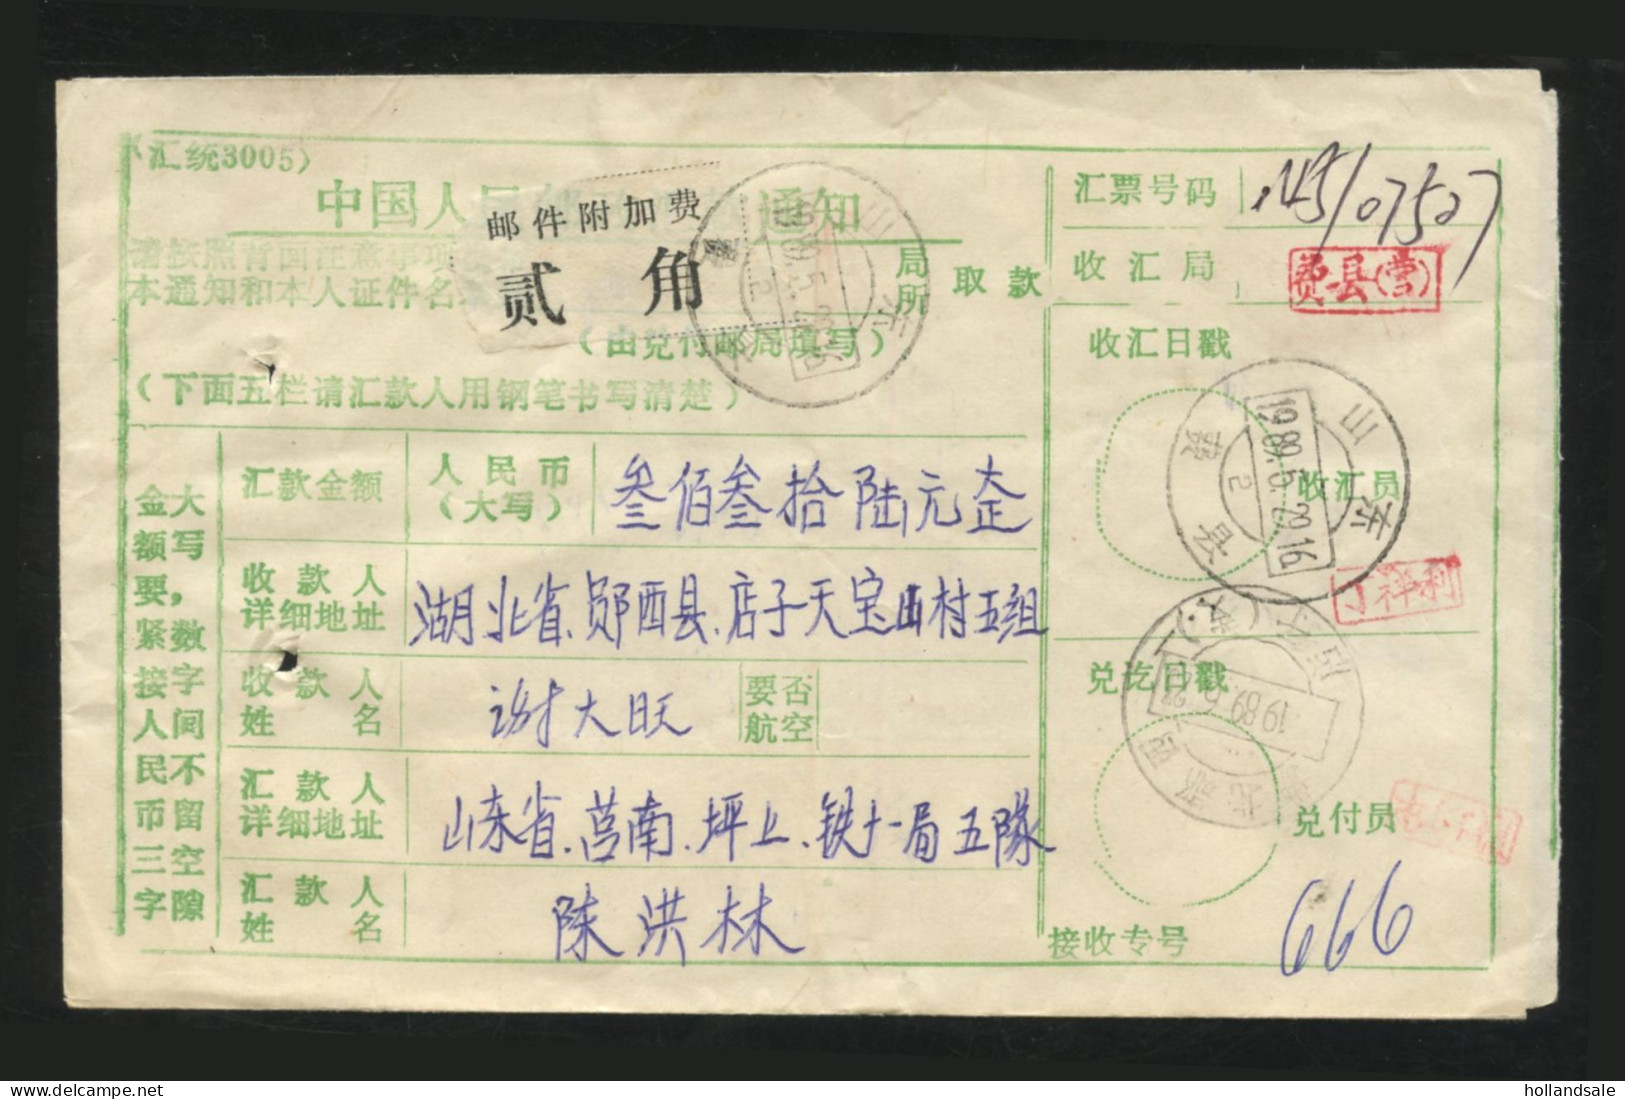 (汇统3005)
中国人民 通知
邮件附加费
贰角
请按照背面注意事项
本通知和本人证件名
局所 取款
(由兑付邮局填写)
(下面五栏请汇款人用钢笔书写清楚)
大写数字间不留空隙
金额要紧接人民币三字
汇款金额 人民币(大写) 叁佰叁拾陆元
收款人详细地址 湖北省、郧西县、店子天宝山村五组
收款人姓名 谢大旺 要否航空
汇款人详细地址 山东省、莒南、坪上、铁十一局五隊
汇款人姓名 陈洪林
汇票号码 145/07507
收汇局 费县(营)
收汇日戳
山东
费县
1989.5.29.16
2
收汇员 丁祥利
兑讫日戳
1989.6.
兑付员
接收专号 666
山东
1989.5.29.16
2
hollandsale